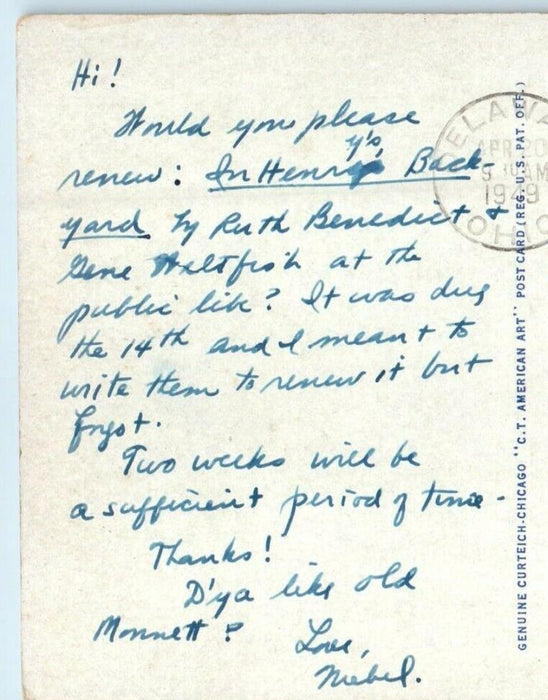 Hi!
Would you please
renew: In Henry's Back-
yard by Ruth Benedict +
Gene Weltfish at the
public lib? It was due
the 14th and I meant to
write them to renew it but
forgot.
Two weeks will be
a sufficient period of time.
Thanks!
D'ya like old
Monnett?
Love,
Mebel.
DELAWA
APR 20
9 30 AM
1949
OHIO
GENUINE CURTEICH-CHICAGO "C.T. AMERICAN ART" POST CARD (REG. U. S. PAT. OFF.)